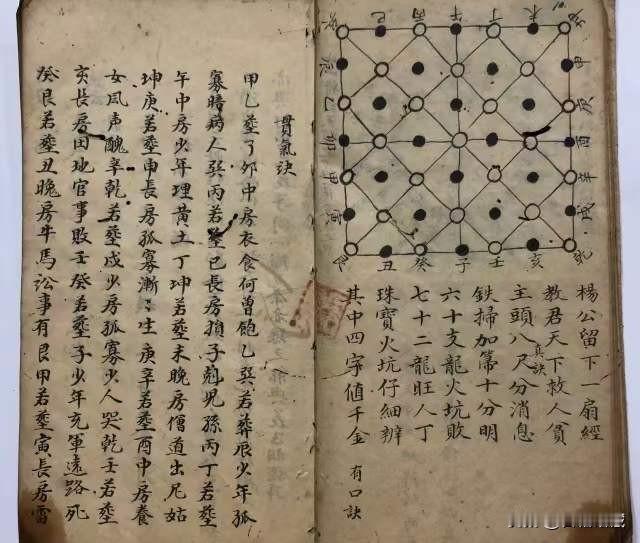 巳 丙 午 丁 未
申
庚
酉
辛
戌
辰
乙
甲
寅
丑 癸 子 壬 亥
楊公留下一扇經
教君天下救人貧
主頭八尺分消息
真訣
鉄掃加第十分明
六十支龍火坑敗
七十二龍旺人丁
珠寶火坑仔細辨
其中四字值千金 有口訣
貫氣訣
甲乙塟了卯中房衣食何曾飽乙巽若葬辰少年孤
寡暗病人巽丙若塟巳長房損子剋兒孫丙丁若塟
午中房少年理黃土丁坤若塟未晚房僧道出尼姑
坤庚若塟申長房孤寡漸〻生庚辛若塟酉中房養
女風声醜辛乾若塟戍少房孤寡少人哭乾壬若塟
亥長房田地官事敗壬癸若塟子少年充軍遠路死
癸艮若塟丑晚房牛馬訟事有艮甲若塟寅長房雷